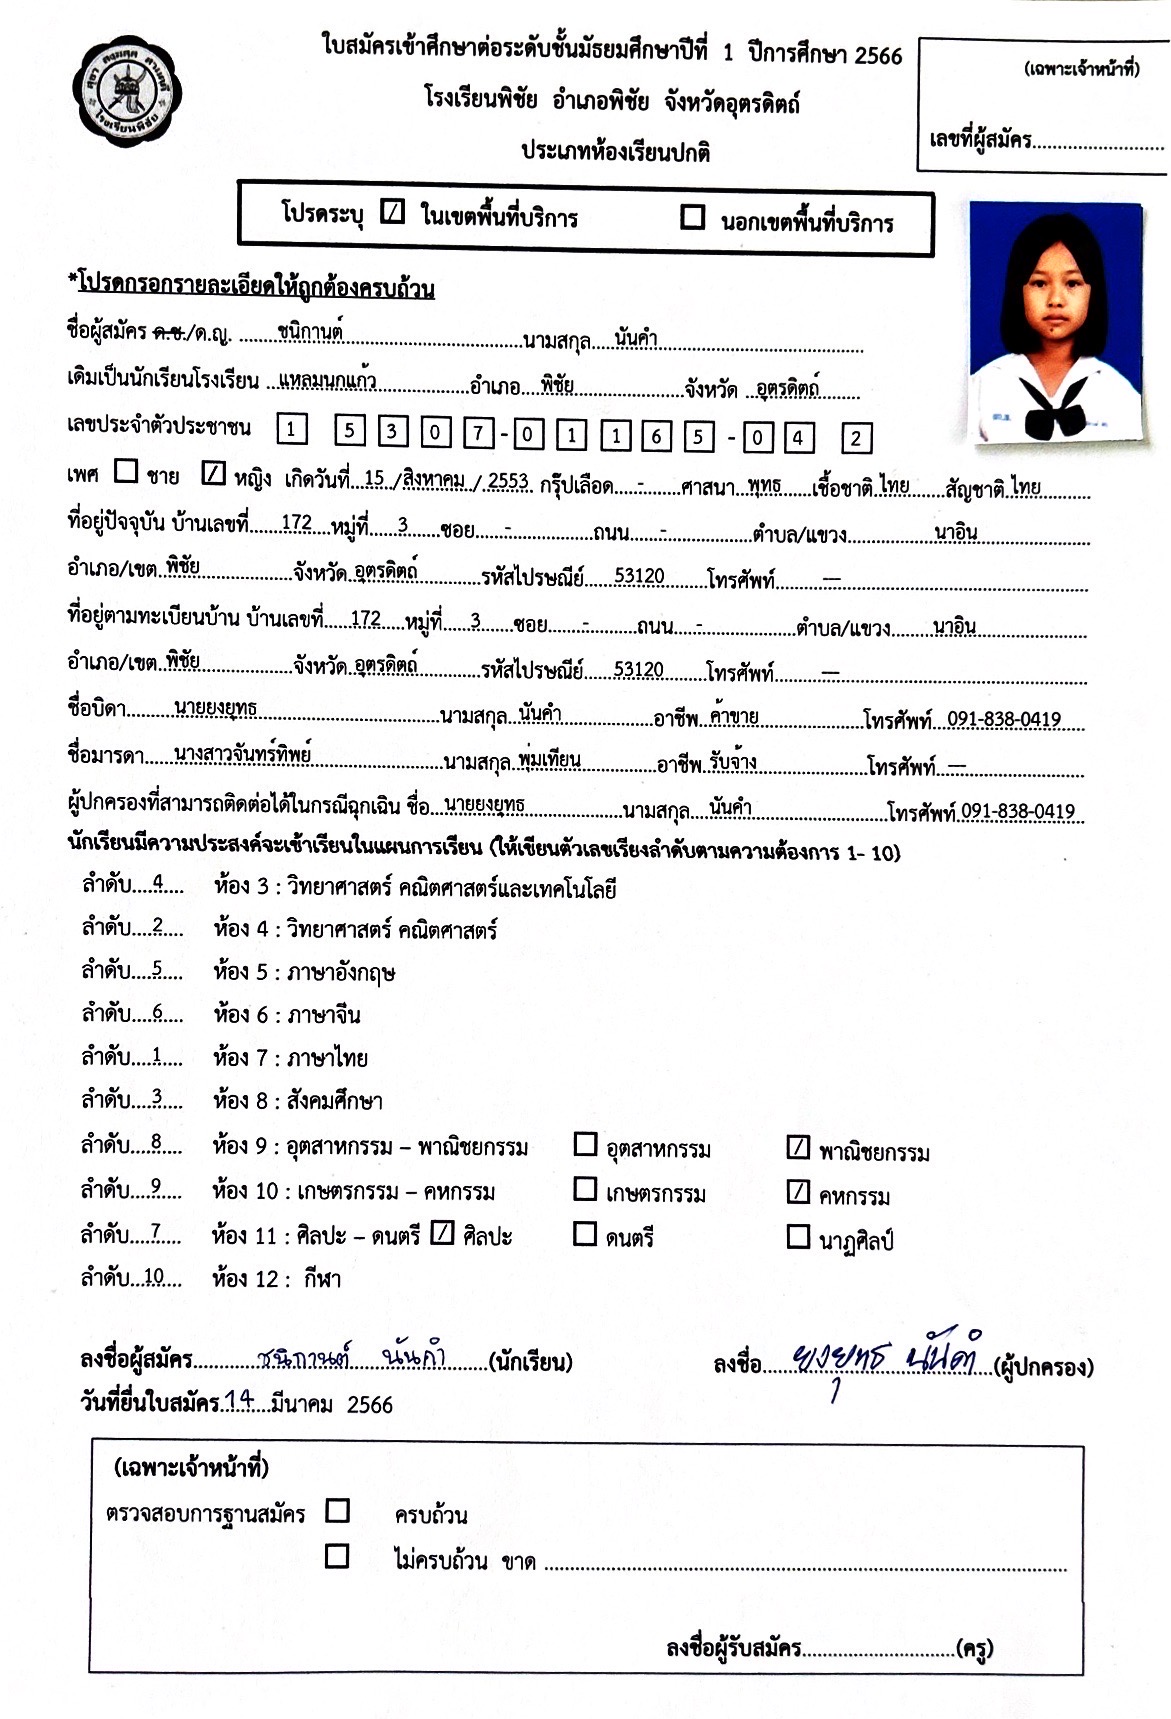 ใบสมัครเข้าศึกษาต่อระดับชั้นมัธยมศึกษาปีที่ 1 ปีการศึกษา 2566
(เฉพาะเจ้าหน้าที่)
โรงเรียนพิชัย อำเภอพิชัย จังหวัดอุตรดิตถ์
เลขที่ผู้สมัคร..........................
โรงเรียนพิชัย
ประเภทห้องเรียนปกติ
โปรดระบุ ☑ ในเขตพื้นที่บริการ ☐ นอกเขตพื้นที่บริการ
*โปรดกรอกรายละเอียดให้ถูกต้องครบถ้วน
ชื่อผู้สมัคร ด.ช./ด.ญ. ชนิกานต์ นามสกุล นันคำ
เดิมเป็นนักเรียนโรงเรียน แหลมนกแก้ว อำเภอ พิชัย จังหวัด อุตรดิตถ์
เลขประจำตัวประชาชน 1 5 3 0 7 - 0 1 1 6 5 - 0 4 2
เพศ ☐ ชาย ☑ หญิง เกิดวันที่ 15 / สิงหาคม / 2553 กรุ๊ปเลือด - ศาสนา พุทธ เชื้อชาติ ไทย สัญชาติ ไทย
ที่อยู่ปัจจุบัน บ้านเลขที่ 172 หมู่ที่ 3 ซอย - ถนน - ตำบล/แขวง นาอิน
อำเภอ/เขต พิชัย จังหวัด อุตรดิตถ์ รหัสไปรษณีย์ 53120 โทรศัพท์ —
ที่อยู่ตามทะเบียนบ้าน บ้านเลขที่ 172 หมู่ที่ 3 ซอย - ถนน - ตำบล/แขวง นาอิน
อำเภอ/เขต พิชัย จังหวัด อุตรดิตถ์ รหัสไปรษณีย์ 53120 โทรศัพท์ —
ชื่อบิดา นายยงยุทธ นามสกุล นันคำ อาชีพ ค้าขาย โทรศัพท์ 091-838-0419
ชื่อมารดา นางสาวจันทร์ทิพย์ นามสกุล พุ่มเทียน อาชีพ รับจ้าง โทรศัพท์ —
ผู้ปกครองที่สามารถติดต่อได้ในกรณีฉุกเฉิน ชื่อ นายยงยุทธ นามสกุล นันคำ โทรศัพท์ 091-838-0419
นักเรียนมีความประสงค์จะเข้าเรียนในแผนการเรียน (ให้เขียนตัวเลขเรียงลำดับตามความต้องการ 1- 10)
ลำดับ 4 ห้อง 3 : วิทยาศาสตร์ คณิตศาสตร์และเทคโนโลยี
ลำดับ 2 ห้อง 4 : วิทยาศาสตร์ คณิตศาสตร์
ลำดับ 5 ห้อง 5 : ภาษาอังกฤษ
ลำดับ 6 ห้อง 6 : ภาษาจีน
ลำดับ 1 ห้อง 7 : ภาษาไทย
ลำดับ 3 ห้อง 8 : สังคมศึกษา
ลำดับ 8 ห้อง 9 : อุตสาหกรรม – พาณิชยกรรม ☐ อุตสาหกรรม ☑ พาณิชยกรรม
ลำดับ 9 ห้อง 10 : เกษตรกรรม – คหกรรม ☐ เกษตรกรรม ☑ คหกรรม
ลำดับ 7 ห้อง 11 : ศิลปะ – ดนตรี ☑ ศิลปะ ☐ ดนตรี ☐ นาฏศิลป์
ลำดับ 10 ห้อง 12 : กีฬา
ลงชื่อผู้สมัคร ชนิกานต์ นันคำ (นักเรียน) ลงชื่อ ยงยุทธ นันคำ (ผู้ปกครอง)
วันที่ยื่นใบสมัคร 14 มีนาคม 2566
(เฉพาะเจ้าหน้าที่)
ตรวจสอบการฐานสมัคร ☐ ครบถ้วน
☐ ไม่ครบถ้วน ขาด ..........................
ลงชื่อผู้รับสมัคร..........................(ครู)